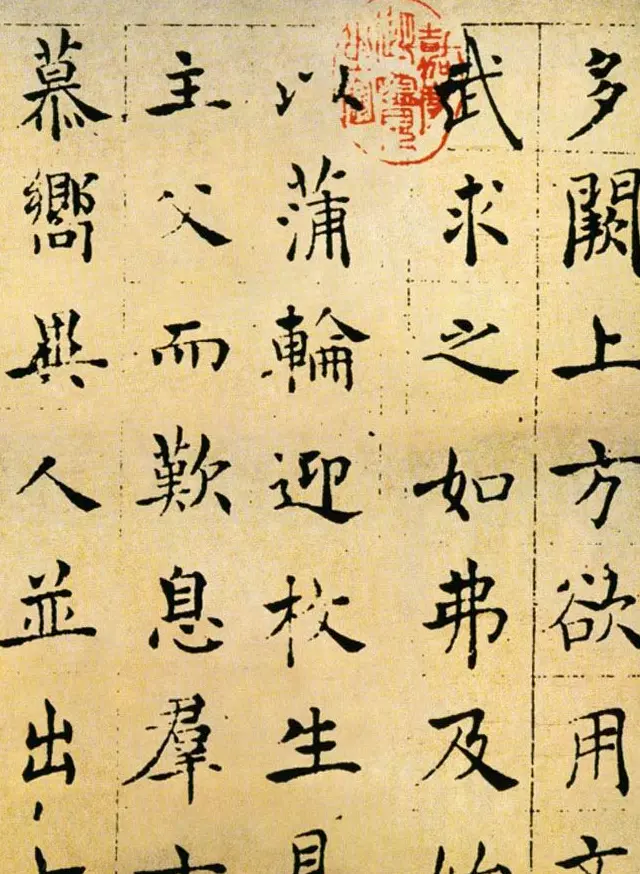 多闕上方欲用文
武求之如弗及始
以蒲輪迎枚生見
主父而歎息羣士
慕嚮異人並出